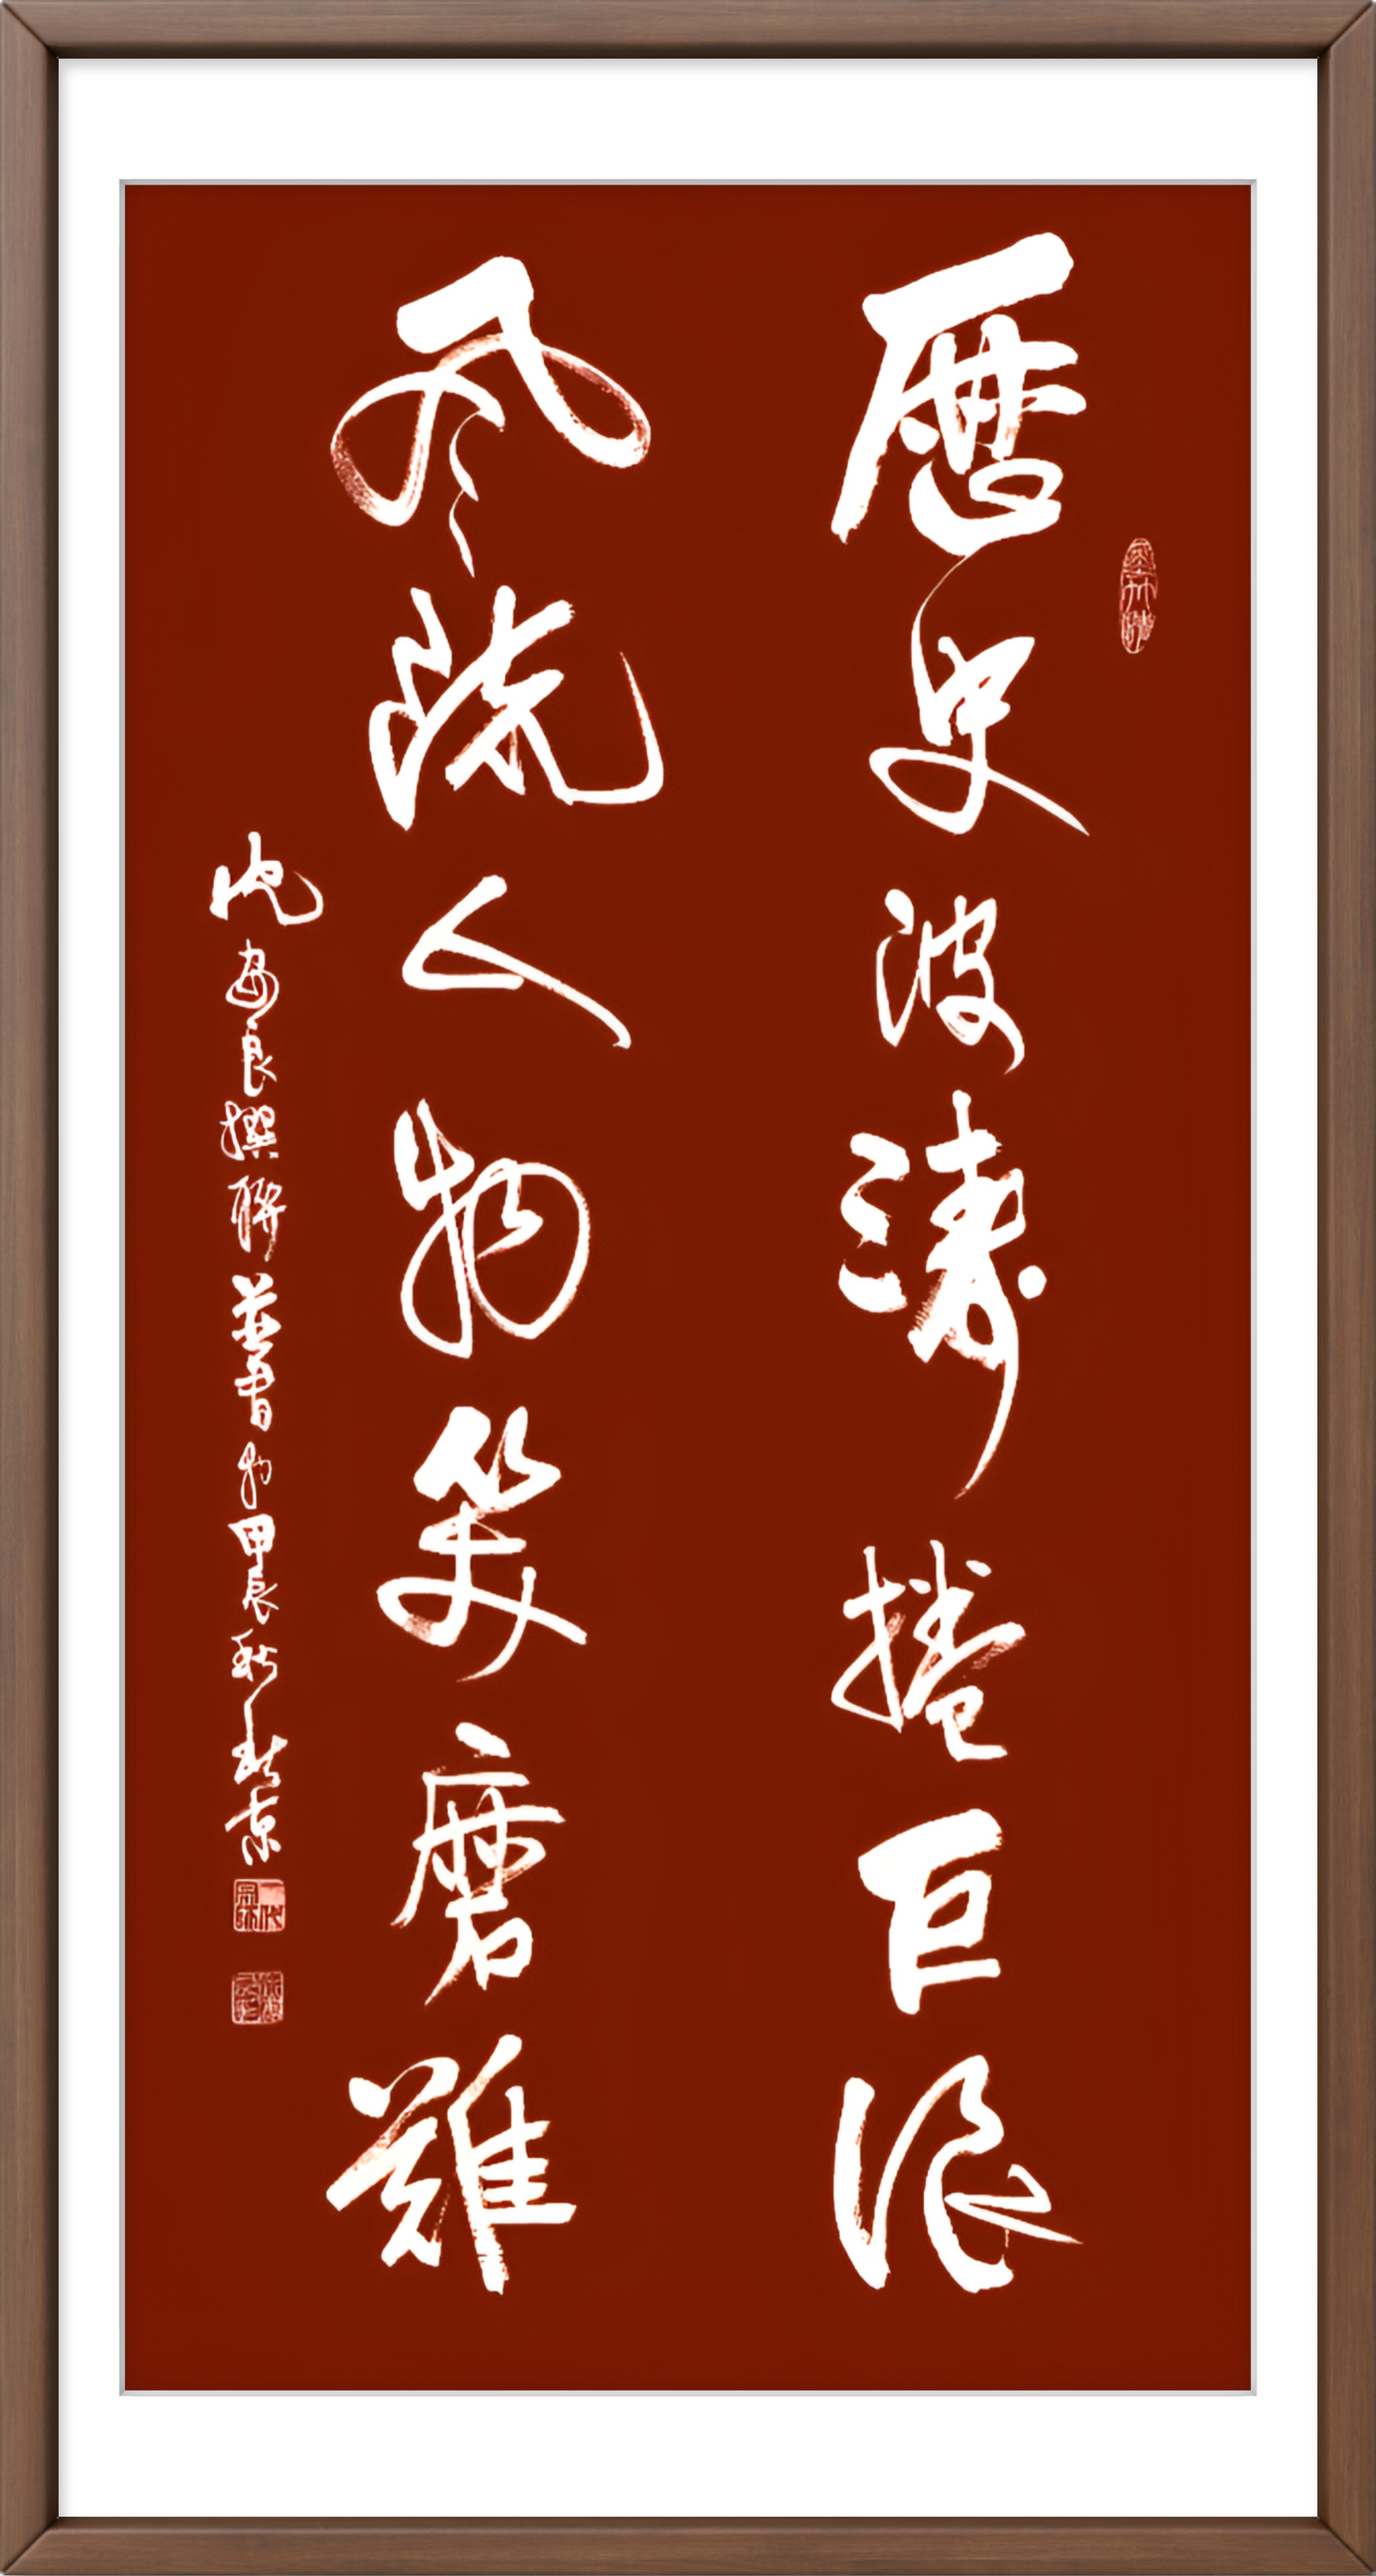 歷史波濤捲巨浪
風流人物笑磨難
沈安良撰聯並書於甲辰秋